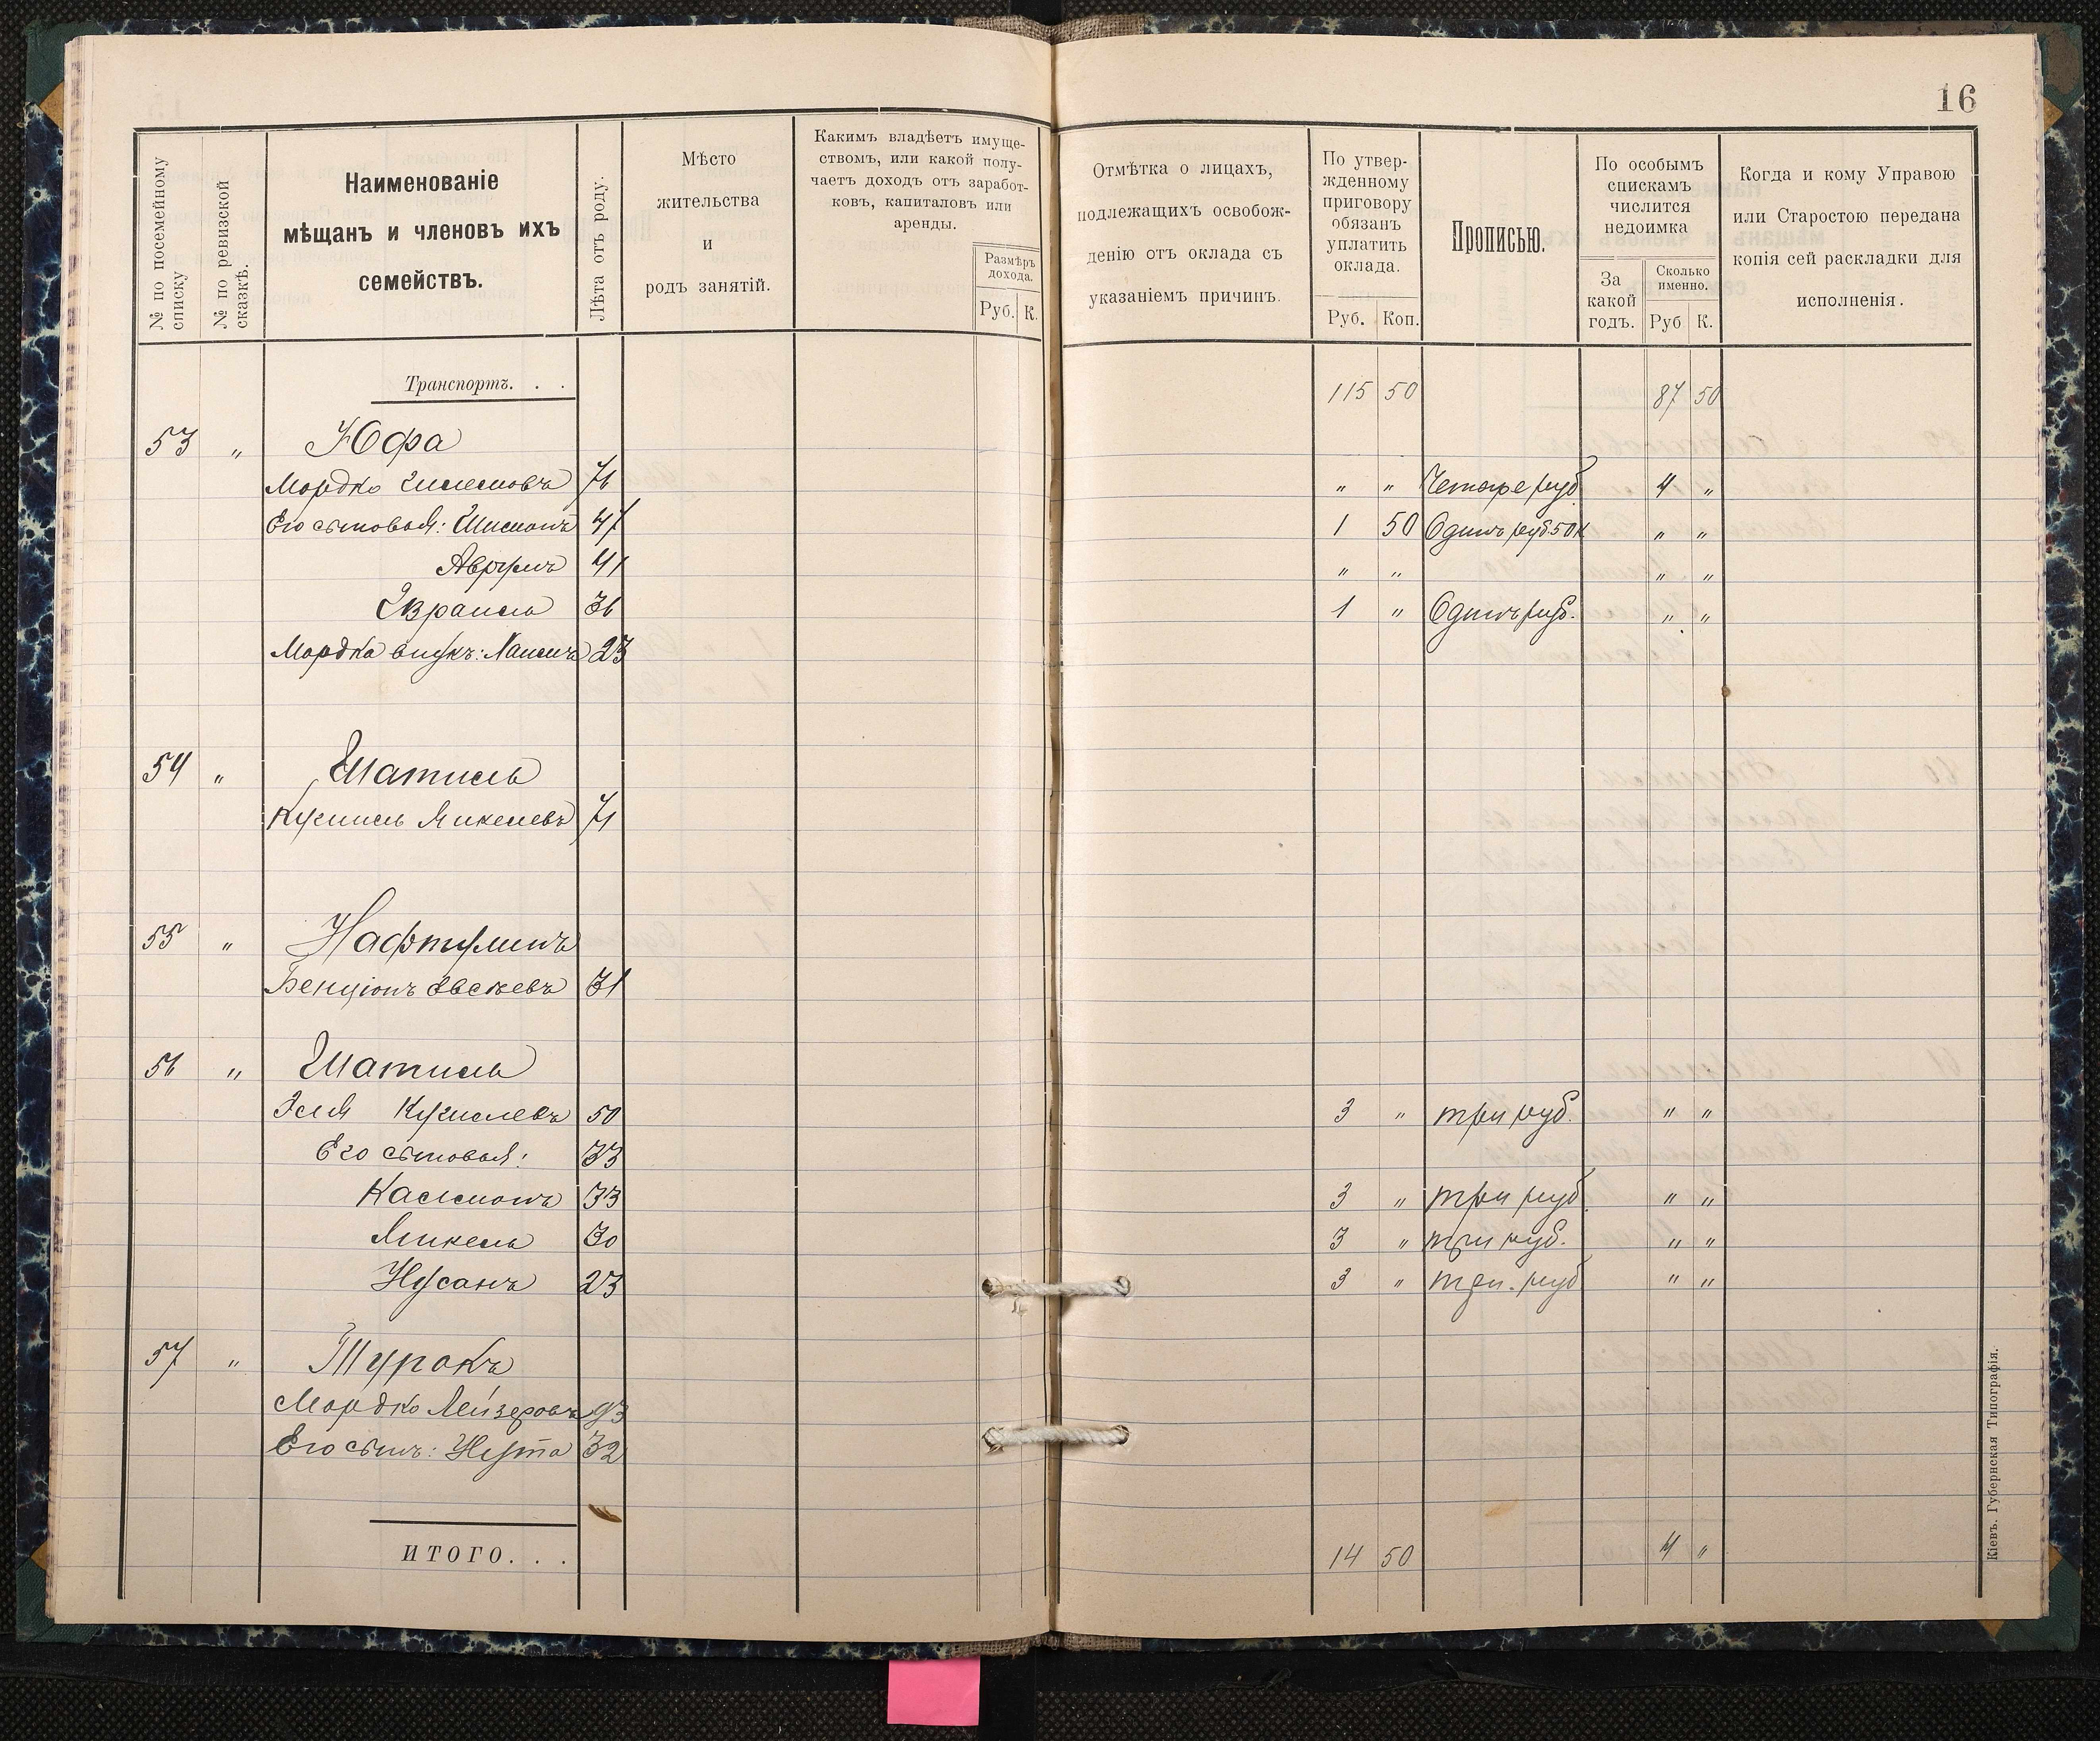 16
№ по посемейному списку
№ по ревизской сказкѣ.
Наименованіе
мѣщанъ и членовъ ихъ
семействъ.
Лѣта отъ роду.
Мѣсто
жительства
и
родъ занятій.
Какимъ владѣетъ имуще-
ствомъ, или какой полу-
чаетъ доходъ отъ заработ-
ковъ, капиталовъ или
аренды.
Размѣръ
дохода.
Руб. К.
Отмѣтка о лицахъ,
подлежащихъ освобож-
денію отъ оклада съ
указаніемъ причинъ.
По утвер-
жденному
приговору
обязанъ
уплатить
оклада.
Руб. Коп.
Прописью.
По особымъ
спискамъ
числится
недоимка
За
какой
годъ.
Сколько
именно.
Руб К.
Когда и кому Управою
или Старостою передана
копія сей раскладки для
исполненія.
Транспортъ. . . 115 50 87 50
53 " Юфа
Мордко 71 " " Четыре руб 4 "
Его сыновья: Шимонъ 47 1 50 Одинъ руб. 50 к " "
Аврумъ 41 " " " "
Израиль 36 1 " Одинъ руб. " "
Мордка внукъ: Хаимъ 23
54 " Шатиль
Кусиель Михелевъ 71
55 " Нафтулинъ
Бенціонъ Евсѣевъ 31
56 " Шатиль
Эля Кусиелевъ 50 3 " три руб. " "
Его сыновья: 33
Калмонъ 33 3 " три руб. " "
Михель 30 3 " три руб. " "
Нусанъ 23 3 " три. руб " "
57 " Турокъ
Мордко Лейзеровъ 93
Его сынъ: Нута 32
ИТОГО. . . 14 50 4 "
Кіевъ. Губернская Типографія.